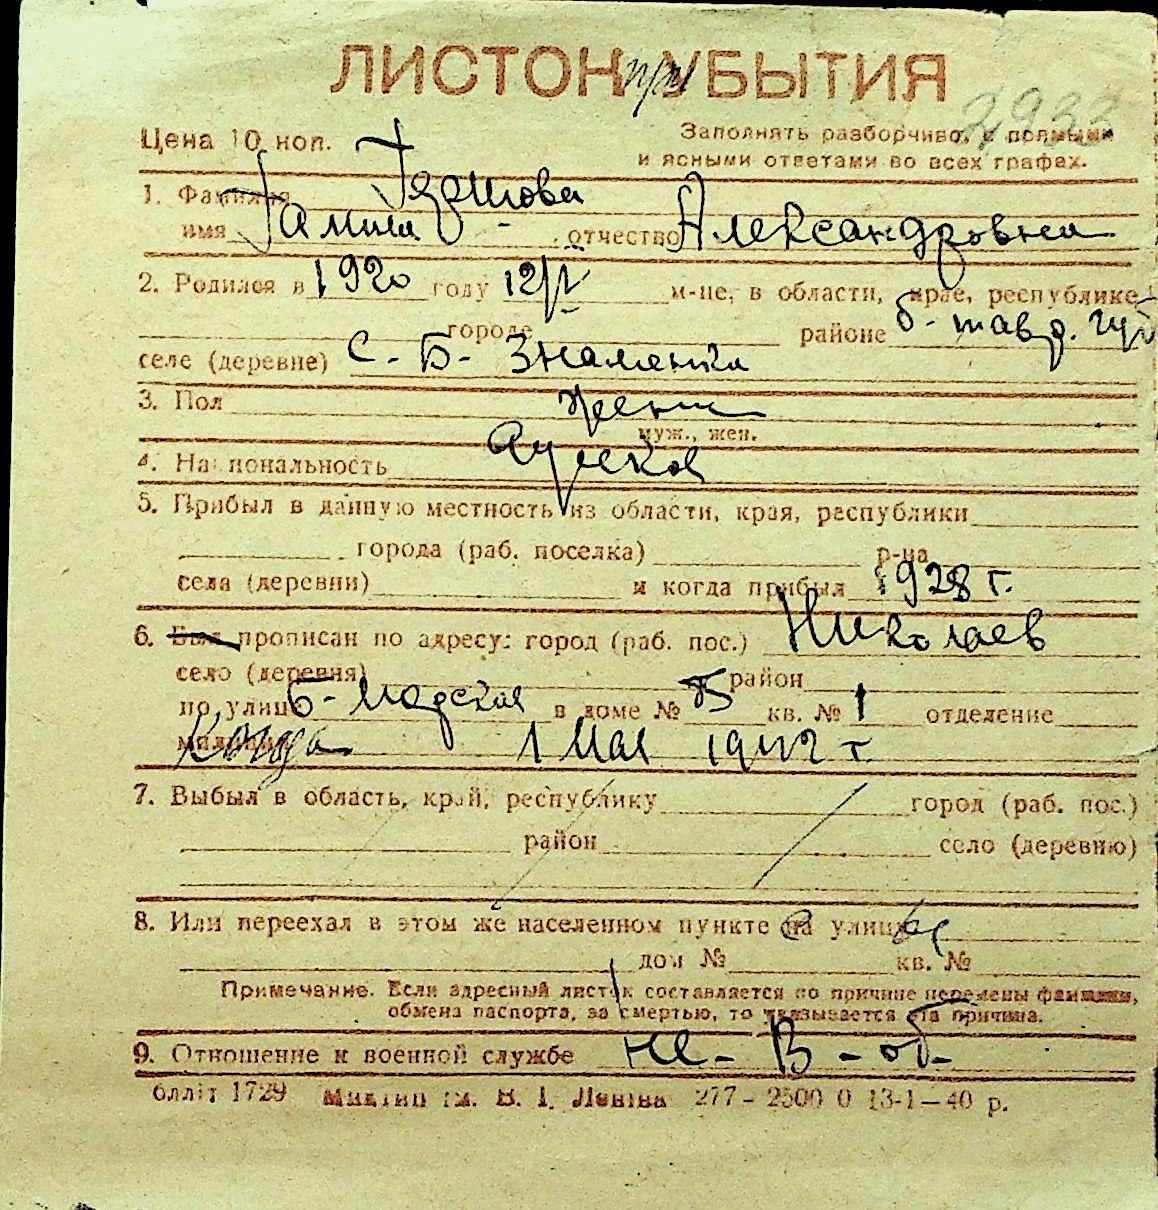 ЛИСТОК при УБЫТИЯ
2933
Цена 10 коп.
Заполнять разборчиво, с прямыми
и ясными ответами во всех графах.
1. Фамилия
имя Галина отчество Александровна
2. Родился в 1920 году 12/V м-це, в области, крае, республике
городе районе б. тавр. губ
селе (деревне) с. Б- Знаменка
3. Пол жен
муж., жен.
4. Национальность
5. Прибыл в данную местность из области, края, республики
города (раб. поселка) р-на
села (деревни) и когда прибыл 1928 г.
6. Был прописан по адресу: город (раб. пос.) Николаев
село (деревня) район
по улице Б- Морская в доме № кв. № 1 отделение
милиции Когда 1 Мая 1942 г.
7. Выбыл в область, край, республику город (раб. пос.)
район село (деревню)
8. Или переехал в этом же населенном пункте на улицу
дом № кв. №
Примечание. Если адресный листок составляется по причине перемены фамилии,
обмена паспорта, за смертью, то указывается эта причина.
9. Отношение к военной службе не- в - об-
блліт 1729 ім. В. І. Леніна 277 - 2500 0 13-1-40 р.